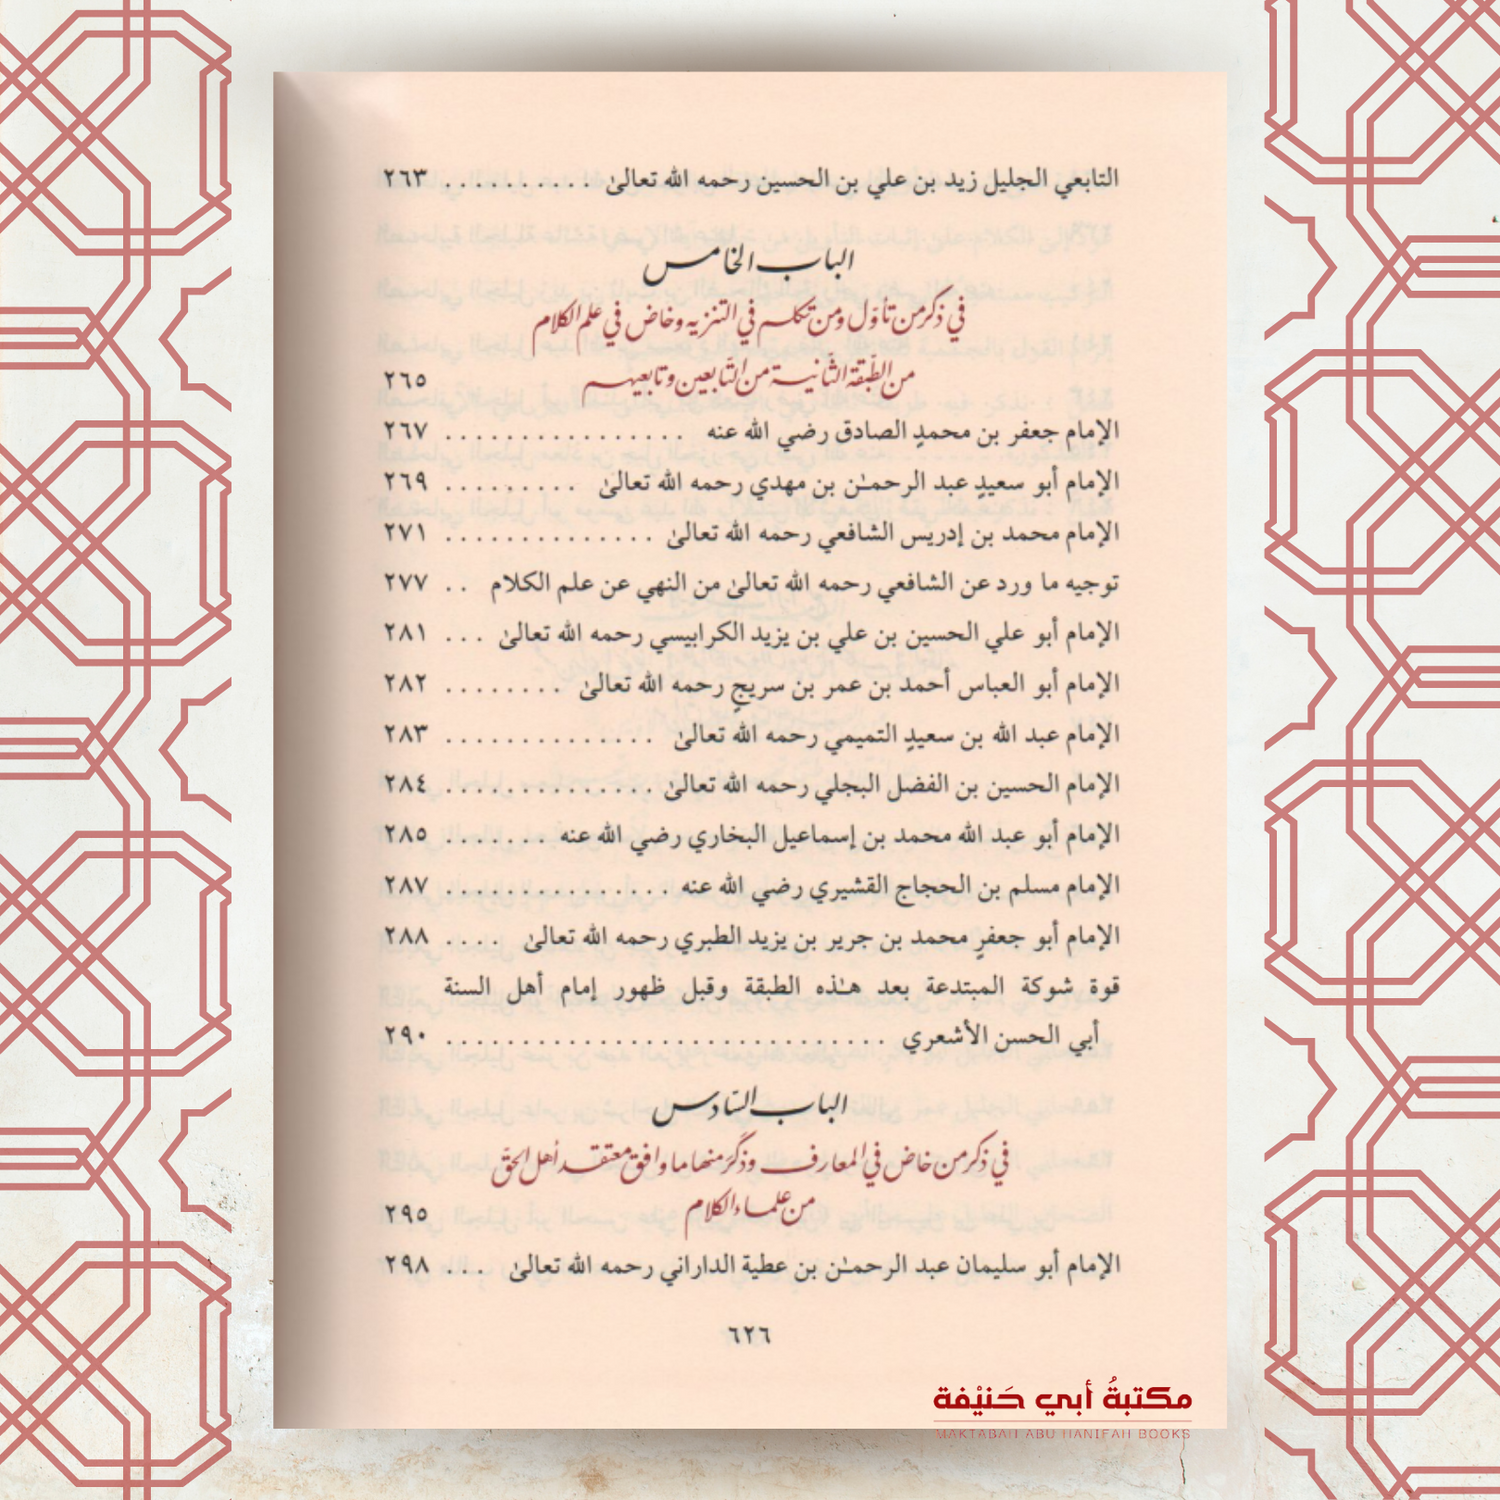 التابعي الجليل زيد بن علي بن الحسين رحمه الله تعالىٰ .......... ٢٦٣
الباب الخامس
في ذكر من تأوّل ومن تكلم في التنزيه وخاض في علم الكلام
من الطّبقة الثانية من التّابعين وتابعيهم ٢٦٥
الإمام جعفر بن محمدٍ الصادق رضي الله عنه ................ ٢٦٧
الإمام أبو سعيدٍ عبد الرحمـٰن بن مهدي رحمه الله تعالىٰ ......... ٢٦٩
الإمام محمد بن إدريس الشافعي رحمه الله تعالىٰ .............. ٢٧١
توجيه ما ورد عن الشافعي رحمه الله تعالىٰ من النهي عن علم الكلام .. ٢٧٧
الإمام أبو علي الحسين بن علي بن يزيد الكرابيسي رحمه الله تعالىٰ ... ٢٨١
الإمام أبو العباس أحمد بن عمر بن سريجٍ رحمه الله تعالىٰ ........ ٢٨٢
الإمام عبد الله بن سعيدٍ التميمي رحمه الله تعالىٰ .............. ٢٨٣
الإمام الحسين بن الفضل البجلي رحمه الله تعالىٰ .............. ٢٨٤
الإمام أبو عبد الله محمد بن إسماعيل البخاري رضي الله عنه ....... ٢٨٥
الإمام مسلم بن الحجاج القشيري رضي الله عنه ............... ٢٨٧
الإمام أبو جعفرٍ محمد بن جرير بن يزيد الطبري رحمه الله تعالىٰ .... ٢٨٨
قوة شوكة المبتدعة بعد هـٰذه الطبقة وقبل ظهور إمام أهل السنة
أبي الحسن الأشعري ............................. ٢٩٠
الباب السّادس
في ذكر من خاض في المعارف وذكر منها ما وافق معتقد أهل الحقّ
من علماء الكلام ٢٩٥
الإمام أبو سليمان عبد الرحمـٰن بن عطية الداراني رحمه الله تعالىٰ ... ٢٩٨
٦٢٦
مكتبةُ أبي حَنيْفة
MAKTABAH ABU HANIFAH BOOKS